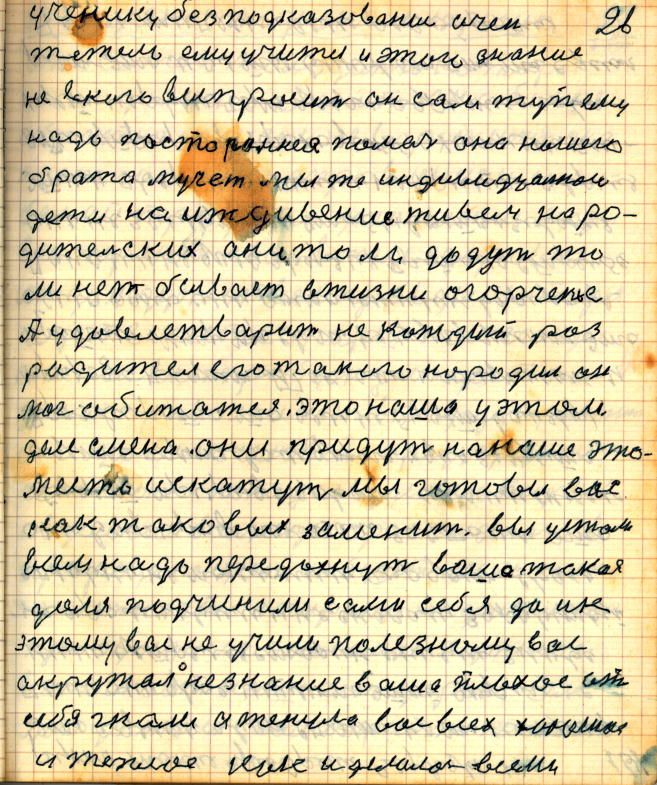 ученику без подказовании очен 26
тежело ему учити и этого знание
не екого выпросит он сам тут ему
надь посторонная помоч она нашего
брата мучет мы же индивидуалнои
дети на иждивение живем на ро-
дителских они то ли дадут то
ли нет бывает в жизни огорченье
А удовлетварит не каждый раз
радител его такого народил он
мог обитатся. это наша у этом
деле смена. они придут на наше это-
место искажут мы готовы вас
как таковых заменит. вы устали
вам надь передохнут ваша такая
доля подчинили сами себя да ик
этому вас не учили полезному вас
акружал незнание ваша плохое от
себя гнали а тенула вас всех хорошое
и теплое и делало всеми